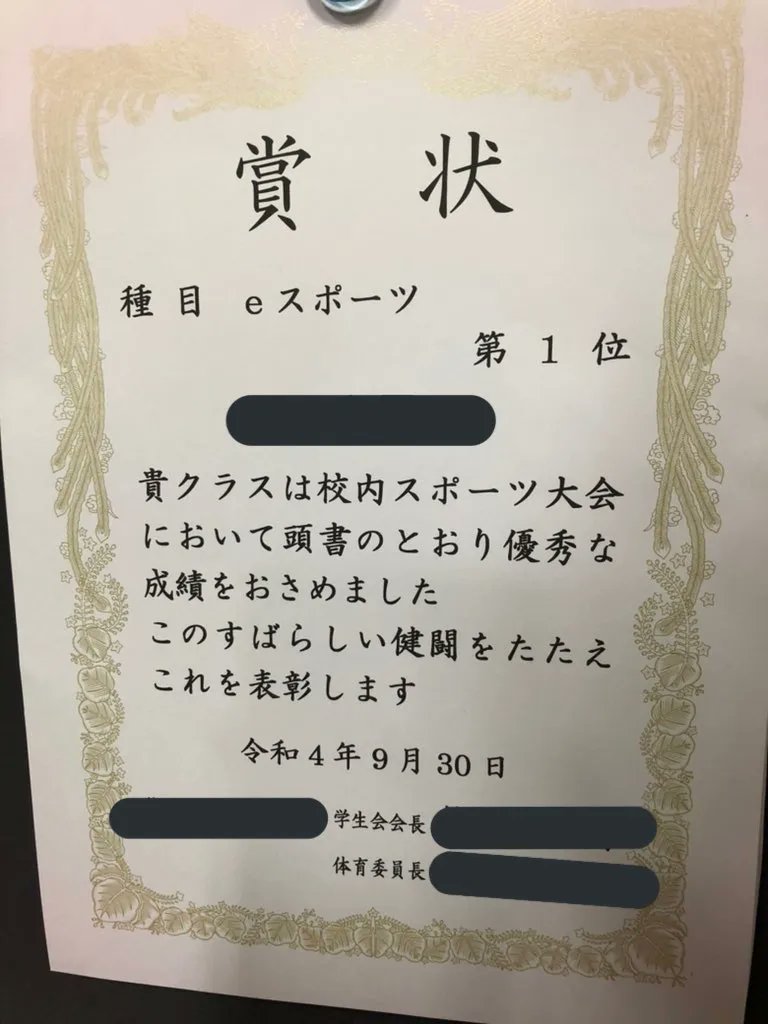 賞状
種目 eスポーツ
第1位
貴クラスは校内スポーツ大会
において頭書のとおり優秀な
成績をおさめました
このすばらしい健闘をたたえ
これを表彰します
令和4年9月30日
学生会会長
体育委員長